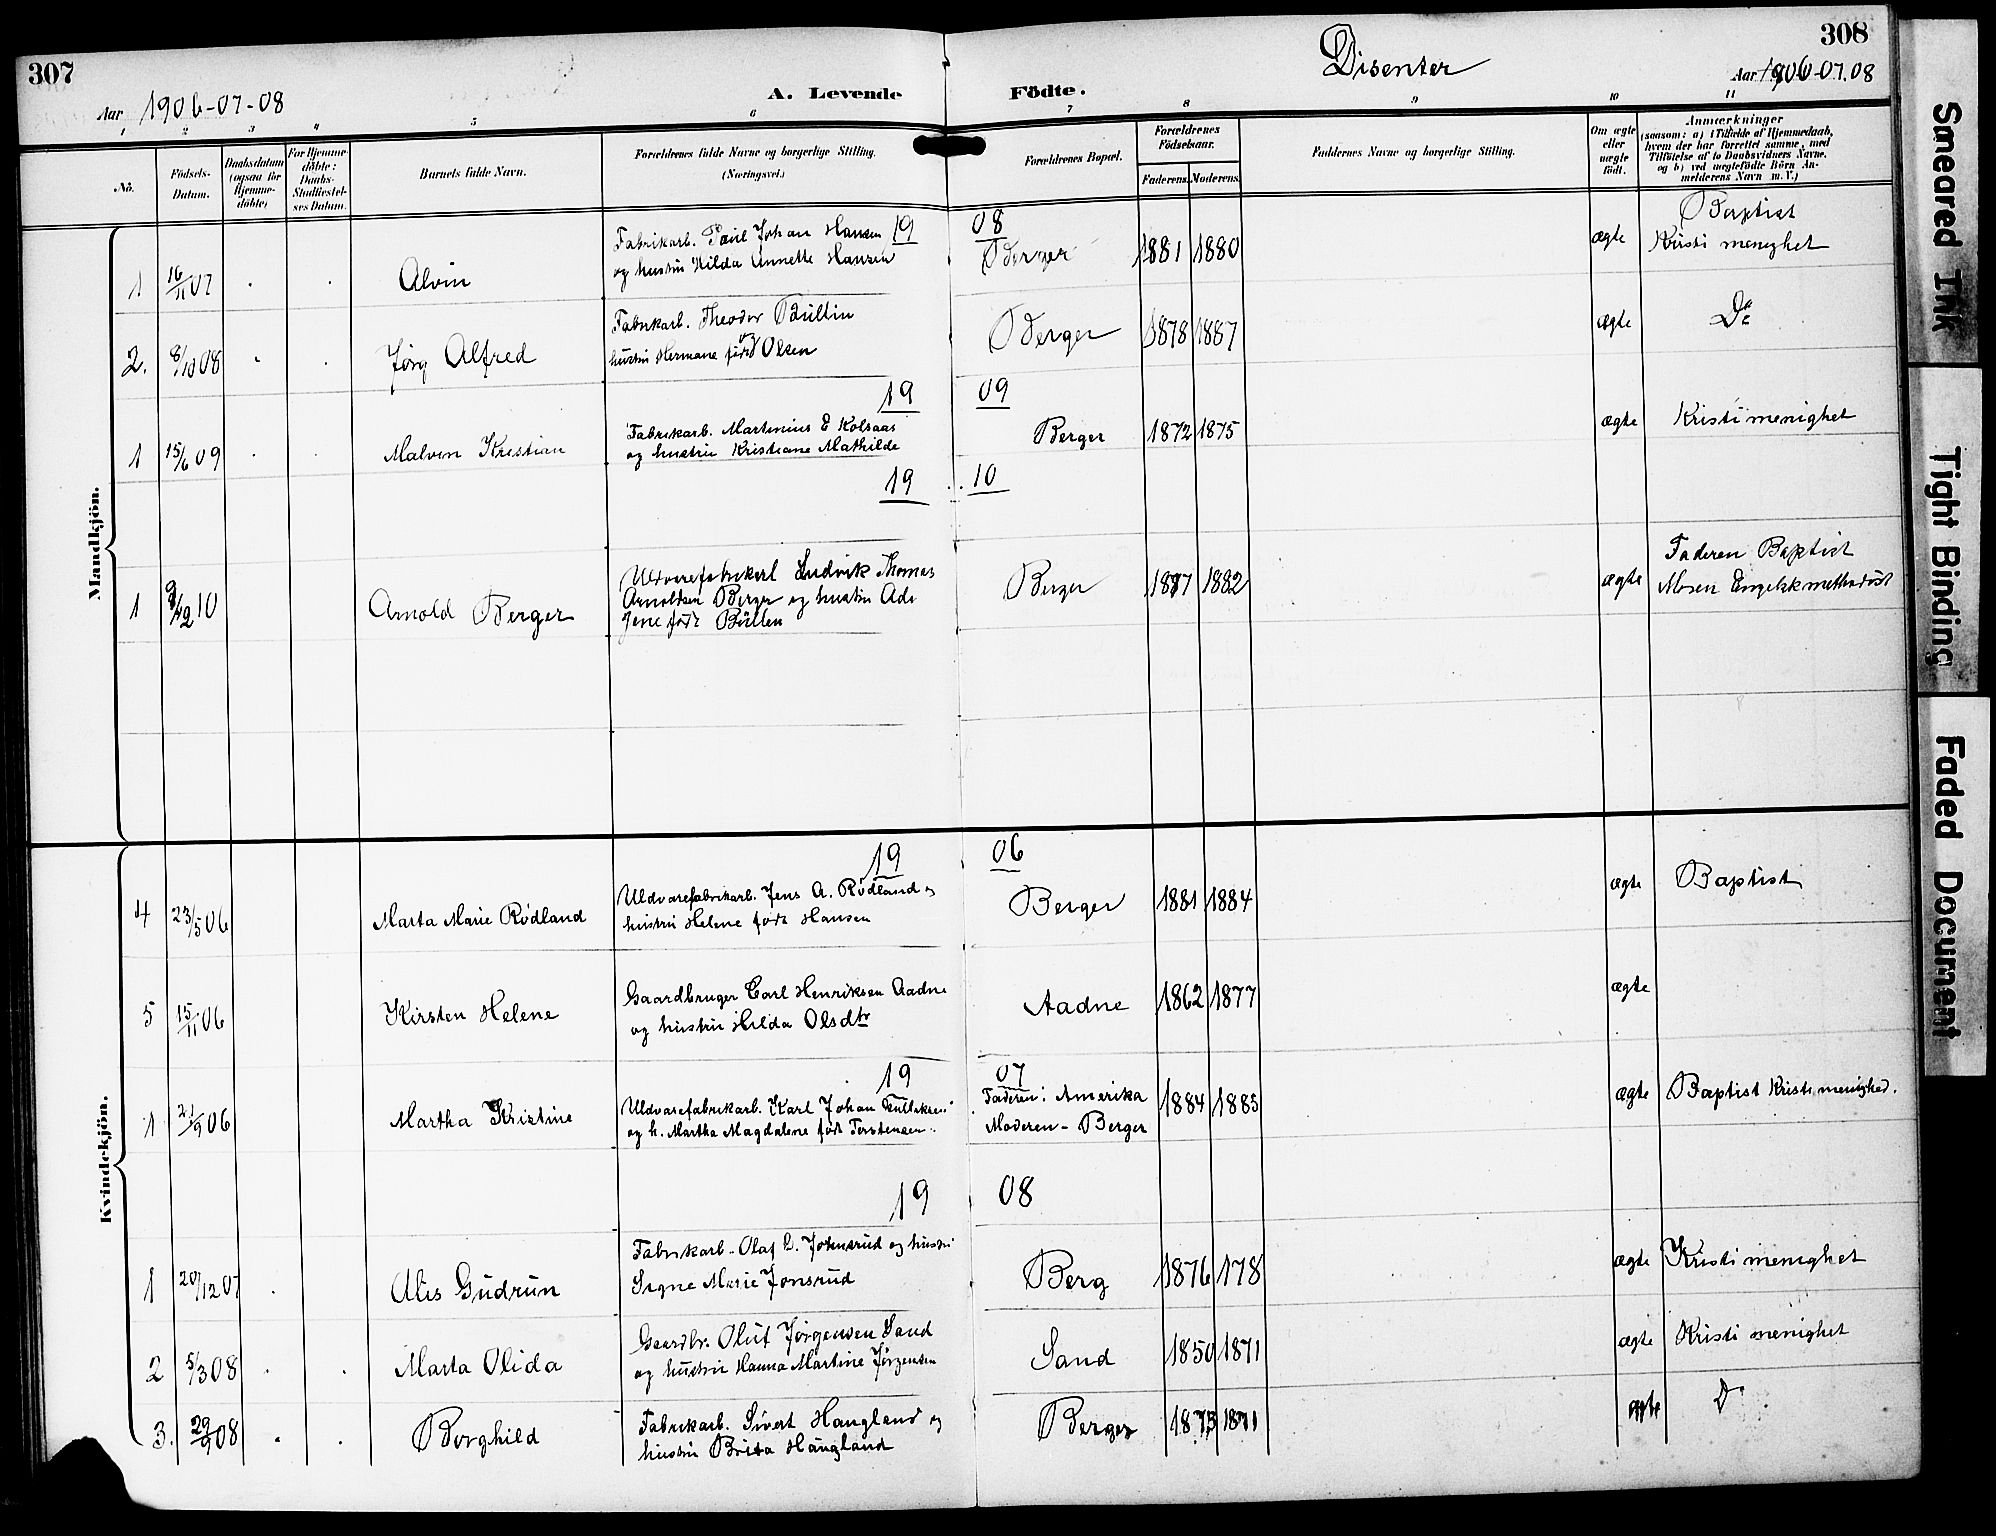 307
308
Disenter
Aar 1906-07-08
A. Levende
Födte.
Aar 1906-07.08
1 2 3 4 5 6 7 8 9 10 11
No.
Födsels-Datum.
Daabsdatum (ogsaa for Hjemme-döbte)
For Hjemme-döbte: Daabs-Stadfæstel-ses Datum.
Barnets fulde Navn.
Forældrenes fulde Navne og borgerlige Stilling. (Næringsvei.)
Forældrenes Bopæl.
Forældrenes Födselsaar.
Faderens. Moderens.
Faddernes Navne og borgerlige Stilling.
Om ægte eller uægte födt.
Anmærkninger (saasom: a) i Tilfælde af Hjemmedaab, hvem der har forrettet samme, med Tilföielse af to Daabsvidners Navne, og b) ved uægtefödte Börn An-melderens Navn m. V.)
Mandkjön.
19 08
Baptist
Fabrikarb. Paul Johan Hansen
1 16/11 07 Alvin og hustru Hilda Annette Hansen Berger 1881 1880 ægte Kristi menighet
Fabrikarb. Theodor Büllin
2. 8/10 08 Jørg Alfred hustru Hermane født Olsen Berger 1878 1887 ægte Do
19 09
Fabrikarb. Martinius E Kolsaas
1 15/6 09 Malvin Kristian og hustru Kristiane Mathilde Berger 1872 1875 ægte Kristi menighet
19 10
Uldvarefabrikarb Ludvik Thomas
1 9/12 10 Arnold Berger Arnoldsen Berger og hustru Ada Berger 1877 1882 ægte Faderen Baptist
Jene født Büllen Moren Engelsk methodist
Kvindekjön.
19 06
Uldvarefabrikarb. Jens A. Rødland og
4 23/5 06 Marta Marie Rødland hustru Helene født Hansen Berger 1881 1884 ægte Baptist
Gaardbruger Carl Henriksen Aadne
5 15/11 06 Kirsten Helene og hustru Hilda Olsdtr Aadne 1862 1877 ægte
19 07
Uldvarefabrikarb. Karl Johan Faderen: Amerika
1 21/9 06 Martha Kristine og h. Martha Magdalene født Torstensen. Moderen - Berger 1884 1885 ægte Baptist Kristi menighed.
19 08
Fabrikarb. Olaf Johnsrud og hustru
1 20/12 07 Alis Gudrun Signe Marie Jonsrud Berg 1876 178 ægte Kristi menighet
Gaardbr. Oluf Jørgensen Sand
2 5/3 08 Marta Olida og hustru Hanna Martine Jörgensen Sand 1850 1871 ægte Kristi menighet
Fabrikarb. Sivert Haugland og
3. 29/9 08 Borghild hustru Brita Haugland Berger 1873 1871 ægte Do
Smeared Ink
Tight Binding
Faded Document